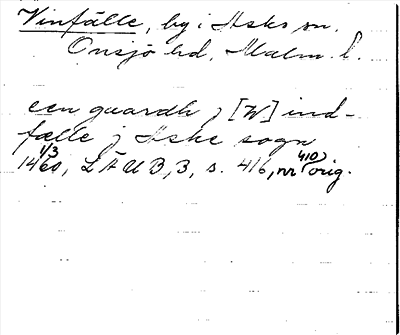 Vinfälle, by i Asks sn.
Onsjö hd, Malm. l.
een guardh j [W]ind-
fælle j Aske sogn
1/3 410
1460, LÄUB, 3, s. 416, nr orig.